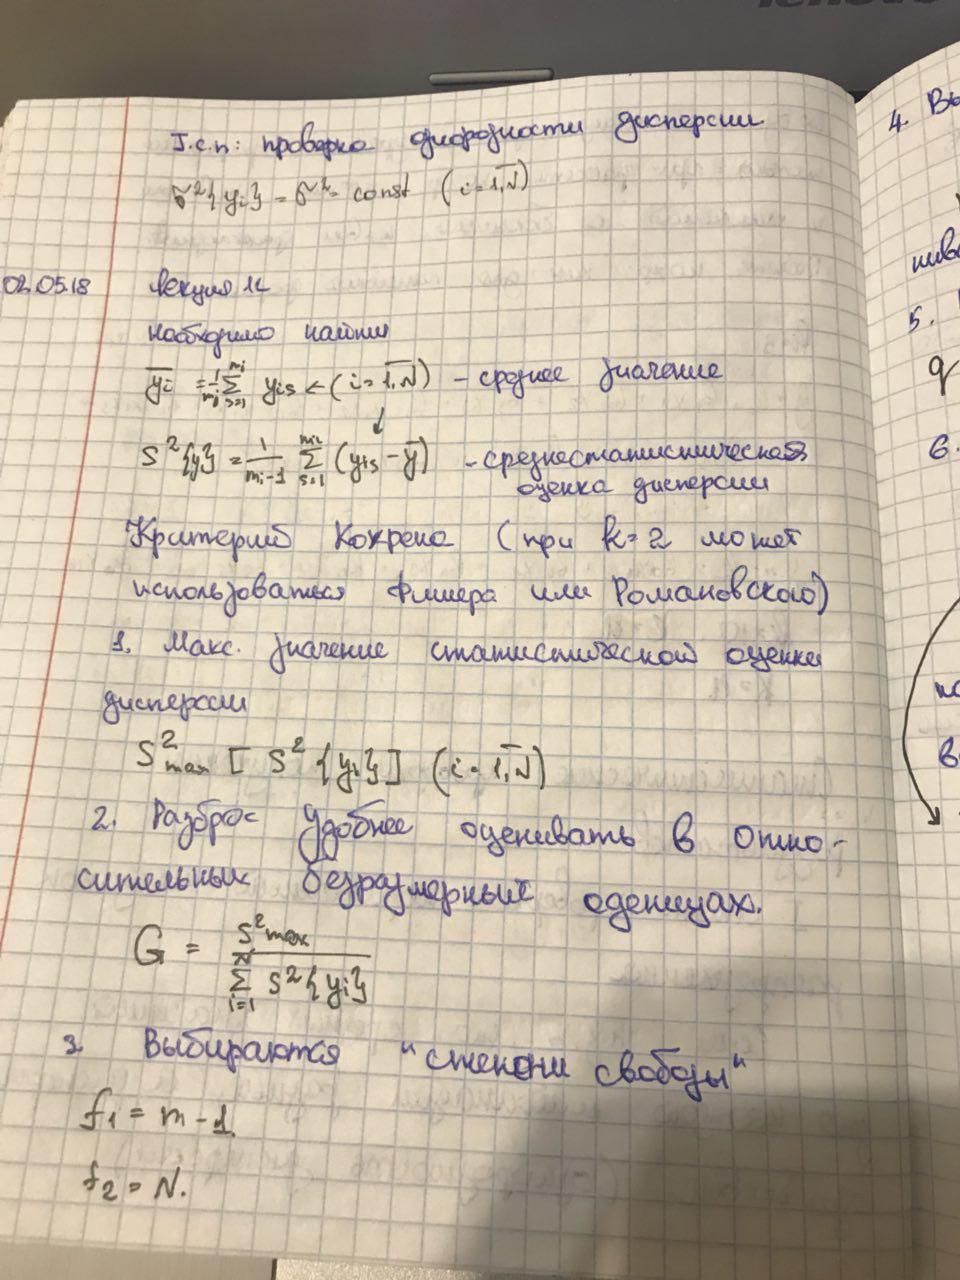 lenovo
Т.с.п: проверка однородности дисперсии
σ²{yi} = σ² = const (i=1,N)
02.05.18 Лекция 14
необходимо найти
yi = 1/mi Σ s=1 mi yis ← (i=1,N) – среднее значение
S²{y} = 1/(mi-1) Σ s=1 mi (yis – y) – среднестатистическая
оценка дисперсии
Критерий Кохрена (при k=2 может
использоваться Фишера или Романовского)
1. Макс. значение статистической оценки
дисперсии
S²max [S²{yi}] (i=1,N)
2. Разброс удобнее оценивать в отно-
сительных безразмерных оденицах.
G = S²max / Σ i=1 N S²{yi}
3 Выбираются "степени свободы"
f1 = m – 1.
f2 = N.
4. Вы
5.
q
6.